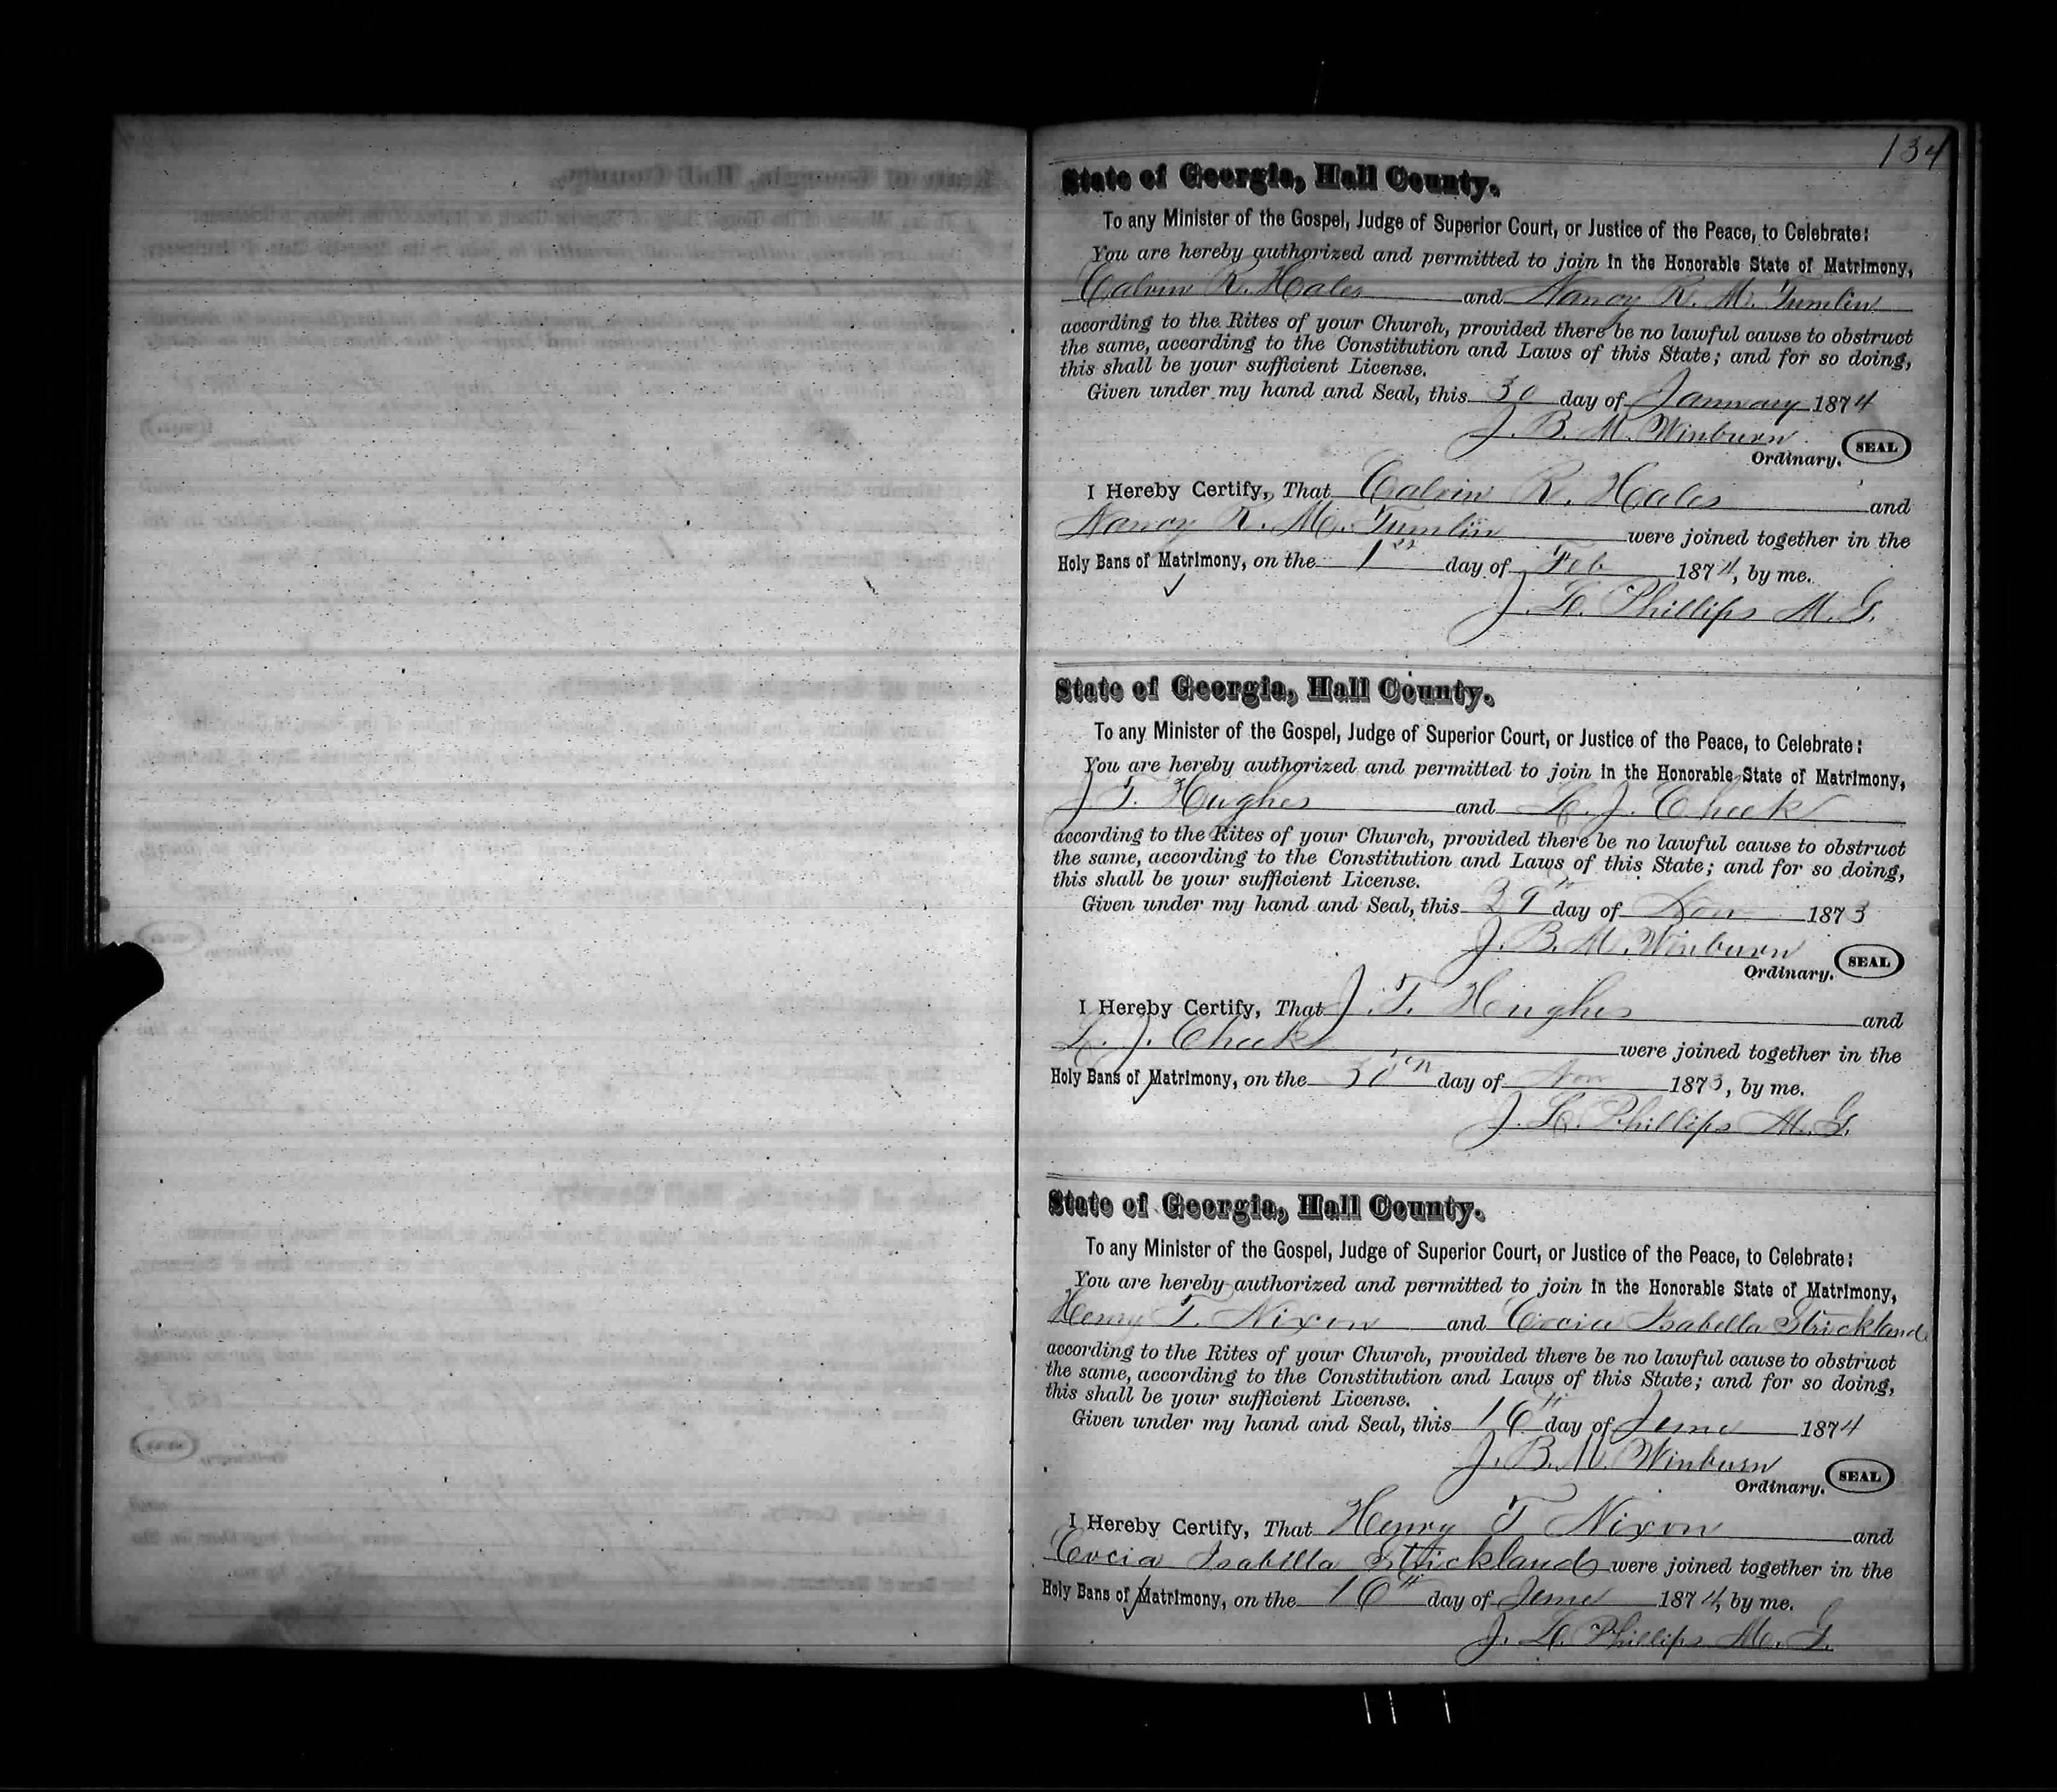 134
State of Georgia, Hall County.
To any Minister of the Gospel, Judge of Superior Court, or Justice of the Peace, to Celebrate:
You are hereby authorized and permitted to join in the Honorable State of Matrimony,
Calvin R. Hales and Nancy R. M. Tumlin
according to the Rites of your Church, provided there be no lawful cause to obstruct
the same, according to the Constitution and Laws of this State; and for so doing,
this shall be your sufficient License.
Given under my hand and Seal, this 30 day of January 1874
J. B. M. Winburn
Ordinary. SEAL
I Hereby Certify, That Calvin R. Hales and
Nancy R. M. Tumlin were joined together in the
Holy Bans of Matrimony, on the 1st day of Feb 1874, by me.
J. L. Phillips M. G.
State of Georgia, Hall County.
To any Minister of the Gospel, Judge of Superior Court, or Justice of the Peace, to Celebrate:
You are hereby authorized and permitted to join in the Honorable State of Matrimony,
J. T. Hughes and L. J. Cheek
according to the Rites of your Church, provided there be no lawful cause to obstruct
the same, according to the Constitution and Laws of this State; and for so doing,
this shall be your sufficient License.
Given under my hand and Seal, this 29th day of Nov 1873
J. B. M. Winburn
Ordinary. SEAL
I Hereby Certify, That J. T. Hughes and
L. J. Cheek were joined together in the
Holy Bans of Matrimony, on the 30th day of Nov 1873, by me.
J. L. Phillips M. G.
State of Georgia, Hall County.
To any Minister of the Gospel, Judge of Superior Court, or Justice of the Peace, to Celebrate:
You are hereby authorized and permitted to join in the Honorable State of Matrimony,
Henry T. Nixon and Isabella Strickland
according to the Rites of your Church, provided there be no lawful cause to obstruct
the same, according to the Constitution and Laws of this State; and for so doing,
this shall be your sufficient License.
Given under my hand and Seal, this 16th day of June 1874
J. B. M. Winburn
Ordinary. SEAL
I Hereby Certify, That Henry T Nixon and
Isabella Strickland were joined together in the
Holy Bans of Matrimony, on the 16th day of June 1874, by me.
J. L. Phillips M. G.